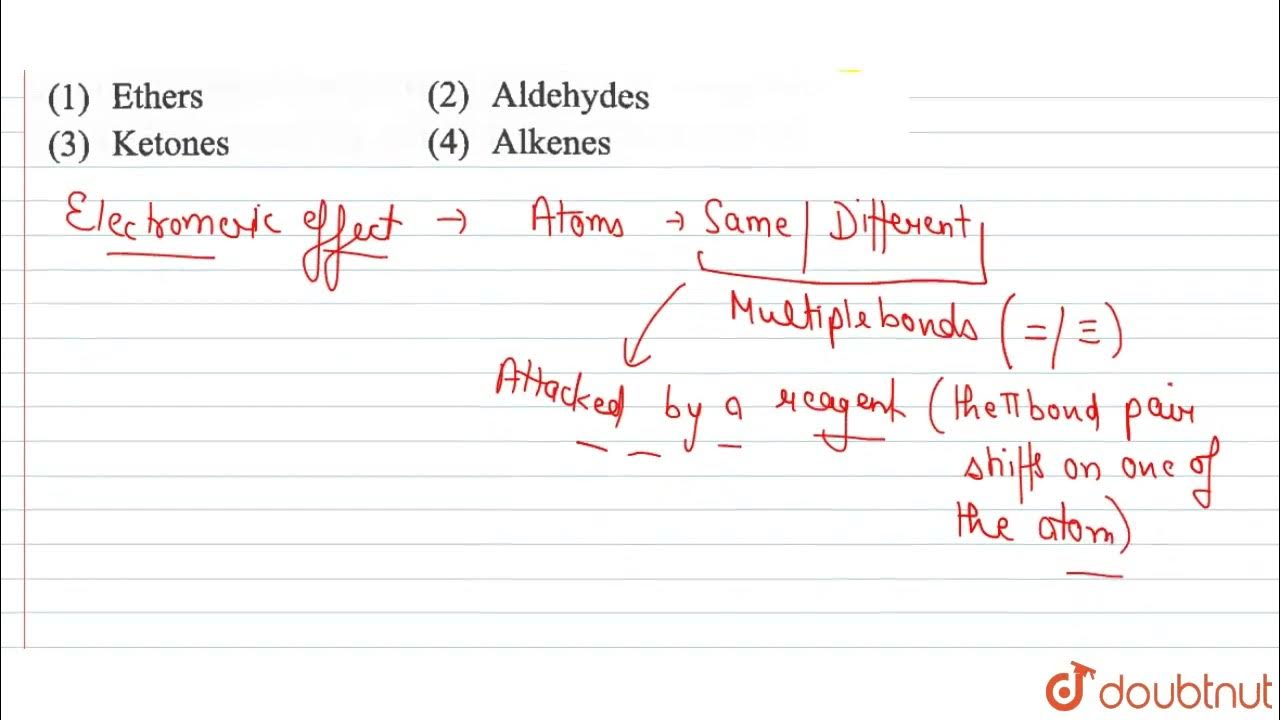 (1) Ethers (2) Aldehydes
(3) Ketones (4) Alkenes
Electromeric effect → Atoms → Same | Different
Multiple bonds (= / ≡)
Attacked by a reagent (the π bond pair
shifts on one of
the atom)
doubtnut